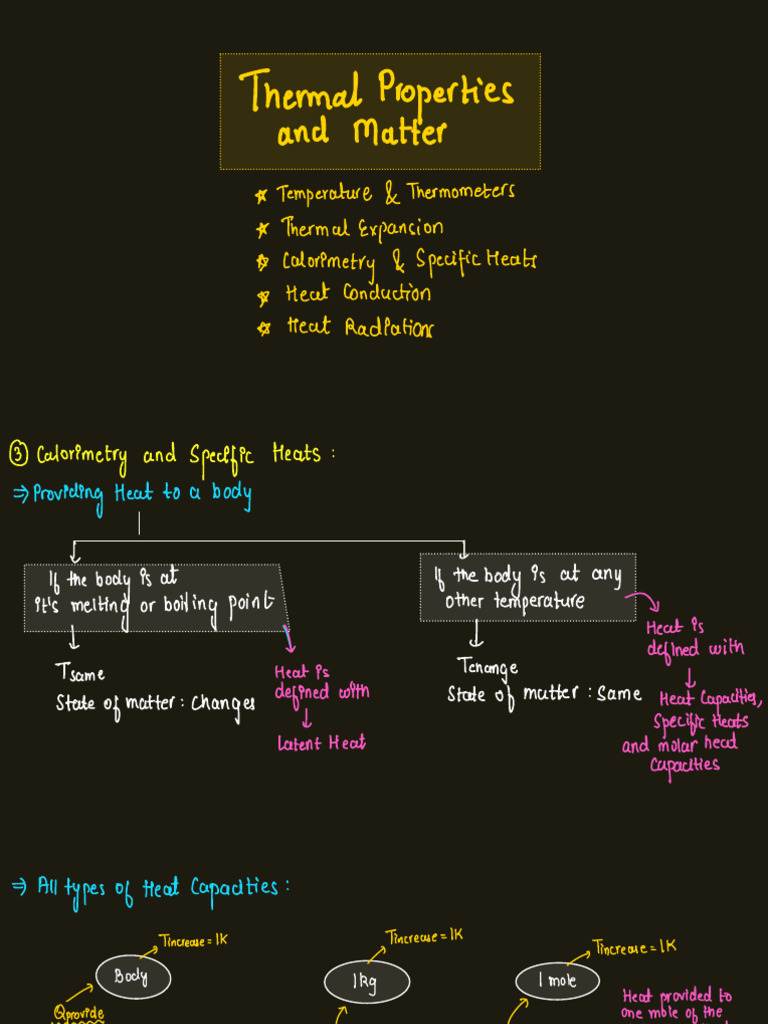 Thermal Properties
and Matter
☆ Temperature & Thermometers
☆ Thermal Expansion
☆ Calorimetry & Specific Heats
☆ Heat Conduction
☆ Heat Radiations
③ Calorimetry and Specific Heats :
⇒ Providing Heat to a body
If the body is at
it's melting or boiling point
If the body is at any
other temperature
Tsame
State of matter : Changes
Heat is
defined with
↓
Latent Heat
Tchange
State of matter : Same
Heat is
defined with
↓
Heat Capacities,
Specific Heats
and molar head
Capacities
⇒ All types of Heat Capacities :
Tincrease = 1K
Body
Qprovide
Tincrease = 1K
1kg
Tincrease = 1K
1 mole
Heat provided to
one mole of the